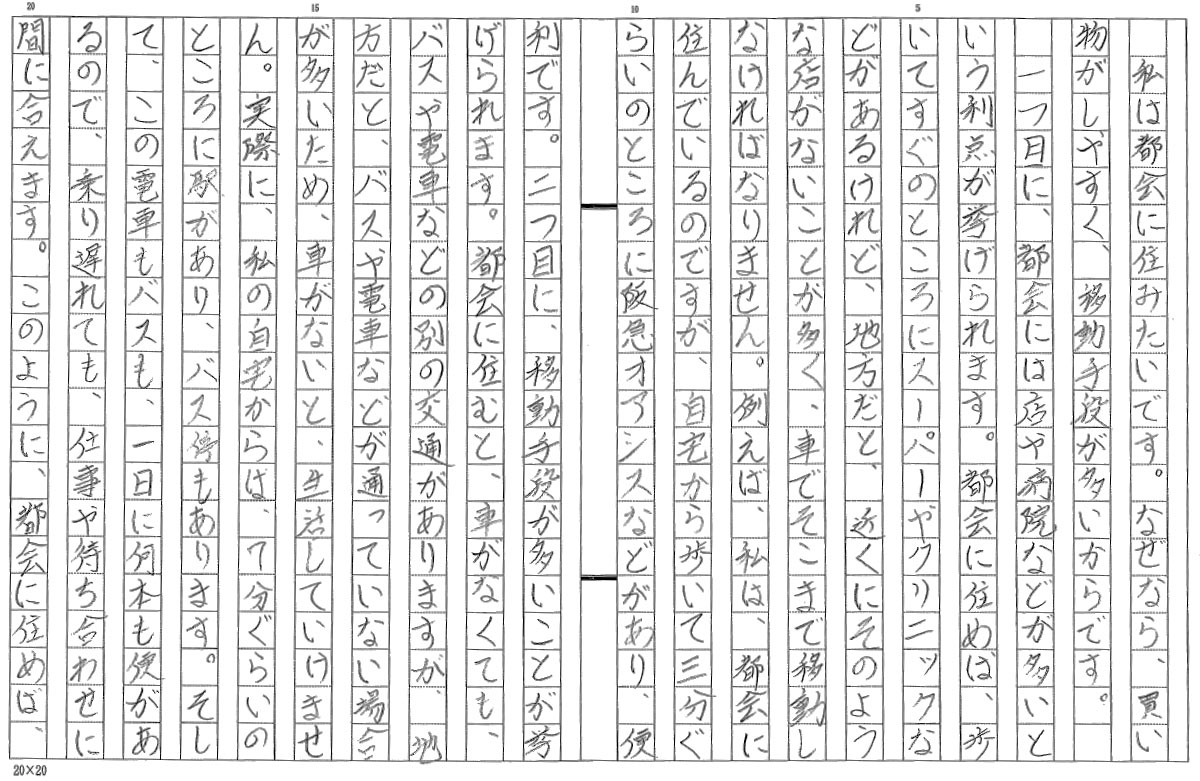 私は都会に住みたいです。なぜなら、買い
物がしやすく、移動手段が多いからです。
一つ目に、都会には店や病院などが多いと
いう利点が挙げられます。都会に住めば、歩
いてすぐのところにスーパーやクリニックな
どがあるけれど、地方だと、近くにそのよう
な店がないことが多く、車でそこまで移動し
なければなりません。例えば、私は、都会に
住んでいるのですが、自宅から歩いて三分ぐ
らいのところに阪急オアシスなどがあり、便
利です。二つ目に、移動手段が多いことが挙
げられます。都会に住むと、車がなくても、
バスや電車などの別の交通がありますが、地
方だと、バスや電車などが通っていない場合
が多いため、車がないと、生活していけませ
ん。実際に、私の自宅からは、7分ぐらいの
ところに駅があり、バス停もあります。そし
て、この電車もバスも、一日に何本も便があ
るので、乗り遅れても、仕事や待ち合わせに
間に合えます。このように、都会に住めば、
5
10
15
20
20×20